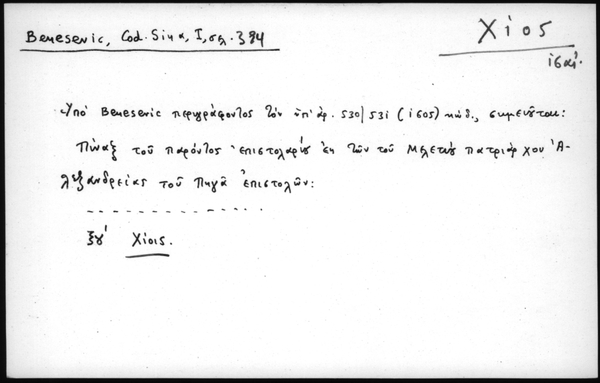 Χίος
Benesevic, Cod. Sin α, I, σελ. 384
ις αἰ.
Ὑπὸ Benesevic περιγράφοντος τὸν ὑπ' ἀρ. 530/531 (1605) κώδ., σημειοῦται:
Πίναξ τοῦ παρόντος ἐπιστολαρίου ἐκ τῶν τοῦ Μελετίου πατριάρχου Ἀ-
λεξανδρείας τοῦ Πηγᾶ ἐπιστολῶν:
- - - - - - - - - - - - - -
ξγ' Χίοις.